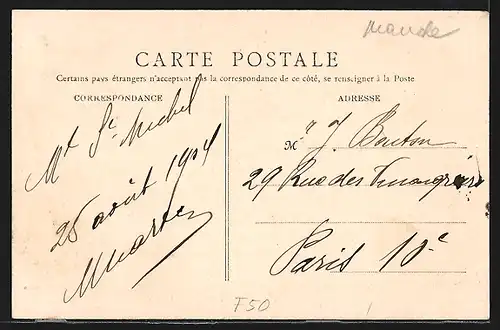 Manche
CARTE POSTALE
Certains pays étrangers n'acceptant pas la correspondance de ce côté, se renseigner à la Poste
CORRESPONDANCE
Mt St Michel
25 août 1904
ADRESSE
M J. Bouton
29 Rue des Vinaigriers
Paris 10e
F50